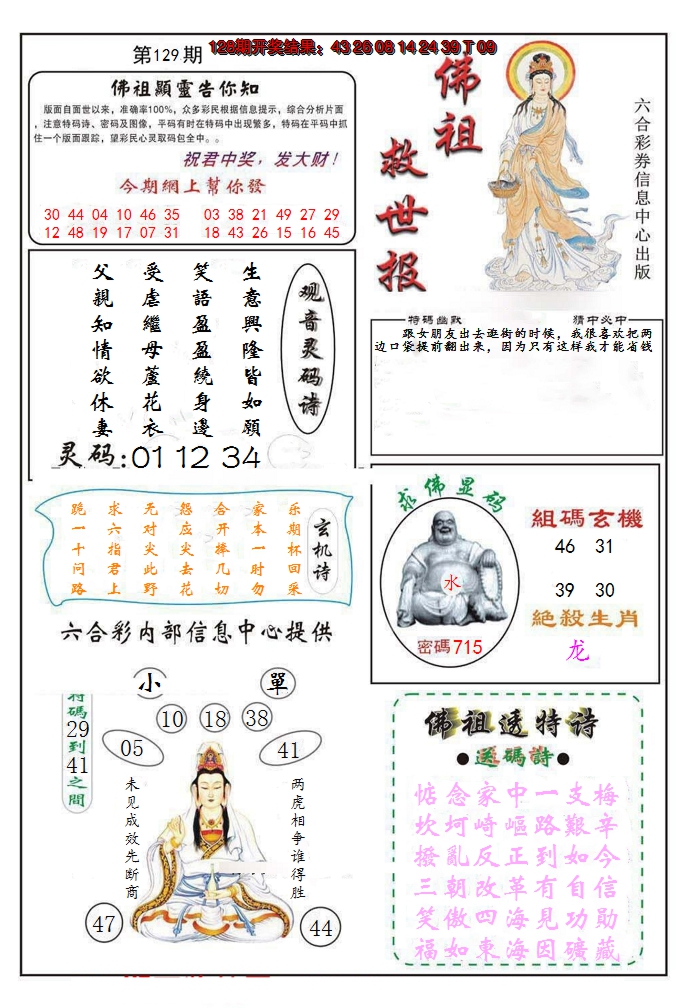 第129期
128期开奖结果：43 26 08 14 24 39 T 09
佛祖顯靈告你知
版面自面世以来，准确率100%，众多彩民根据信息提示，综合分析片面
，注意特码诗、密码及图像，平码有时在特码中出现繁多，特码在平码中抓
住一个版面跟踪，望彩民心灵取码包全中。。
祝君中奖，发大财！
今期網上幫你發
30 44 04 10 46 35 03 38 21 49 27 29
12 48 19 17 07 31 18 43 26 15 16 45
佛祖
救世报
六合彩券信息中心出版
观音灵码诗
生意興隆皆如願
笑語盈盈繞身邊
受虐繼母蘆花衣
父親知情欲休妻
灵码:01 12 34
特碼幽默
猜中必中
跟女朋友出去逛街的时候，我很喜欢把两
边口袋提前翻出来，因为只有这样我才能省钱
玄机诗
乐期杯回采
家本一时勿
合开棒几切
怨应尖去花
无对尖此野
求六指君上
跪一十问路
六合彩内部信息中心提供
求佛显码
水
密碼715
組碼玄機
46 31
39 30
絶殺生肖
龙
小
單
特碼29到41之間
10 18 38
05
41
未见成效先断商
两虎相争谁得胜
47
44
佛祖透特诗
●送碼詩●
惦念家中一支梅
坎坷崎嶇路艱辛
撥亂反正到如今
三朝改革有自信
笑傲四海見功勛
福如東海因礦藏